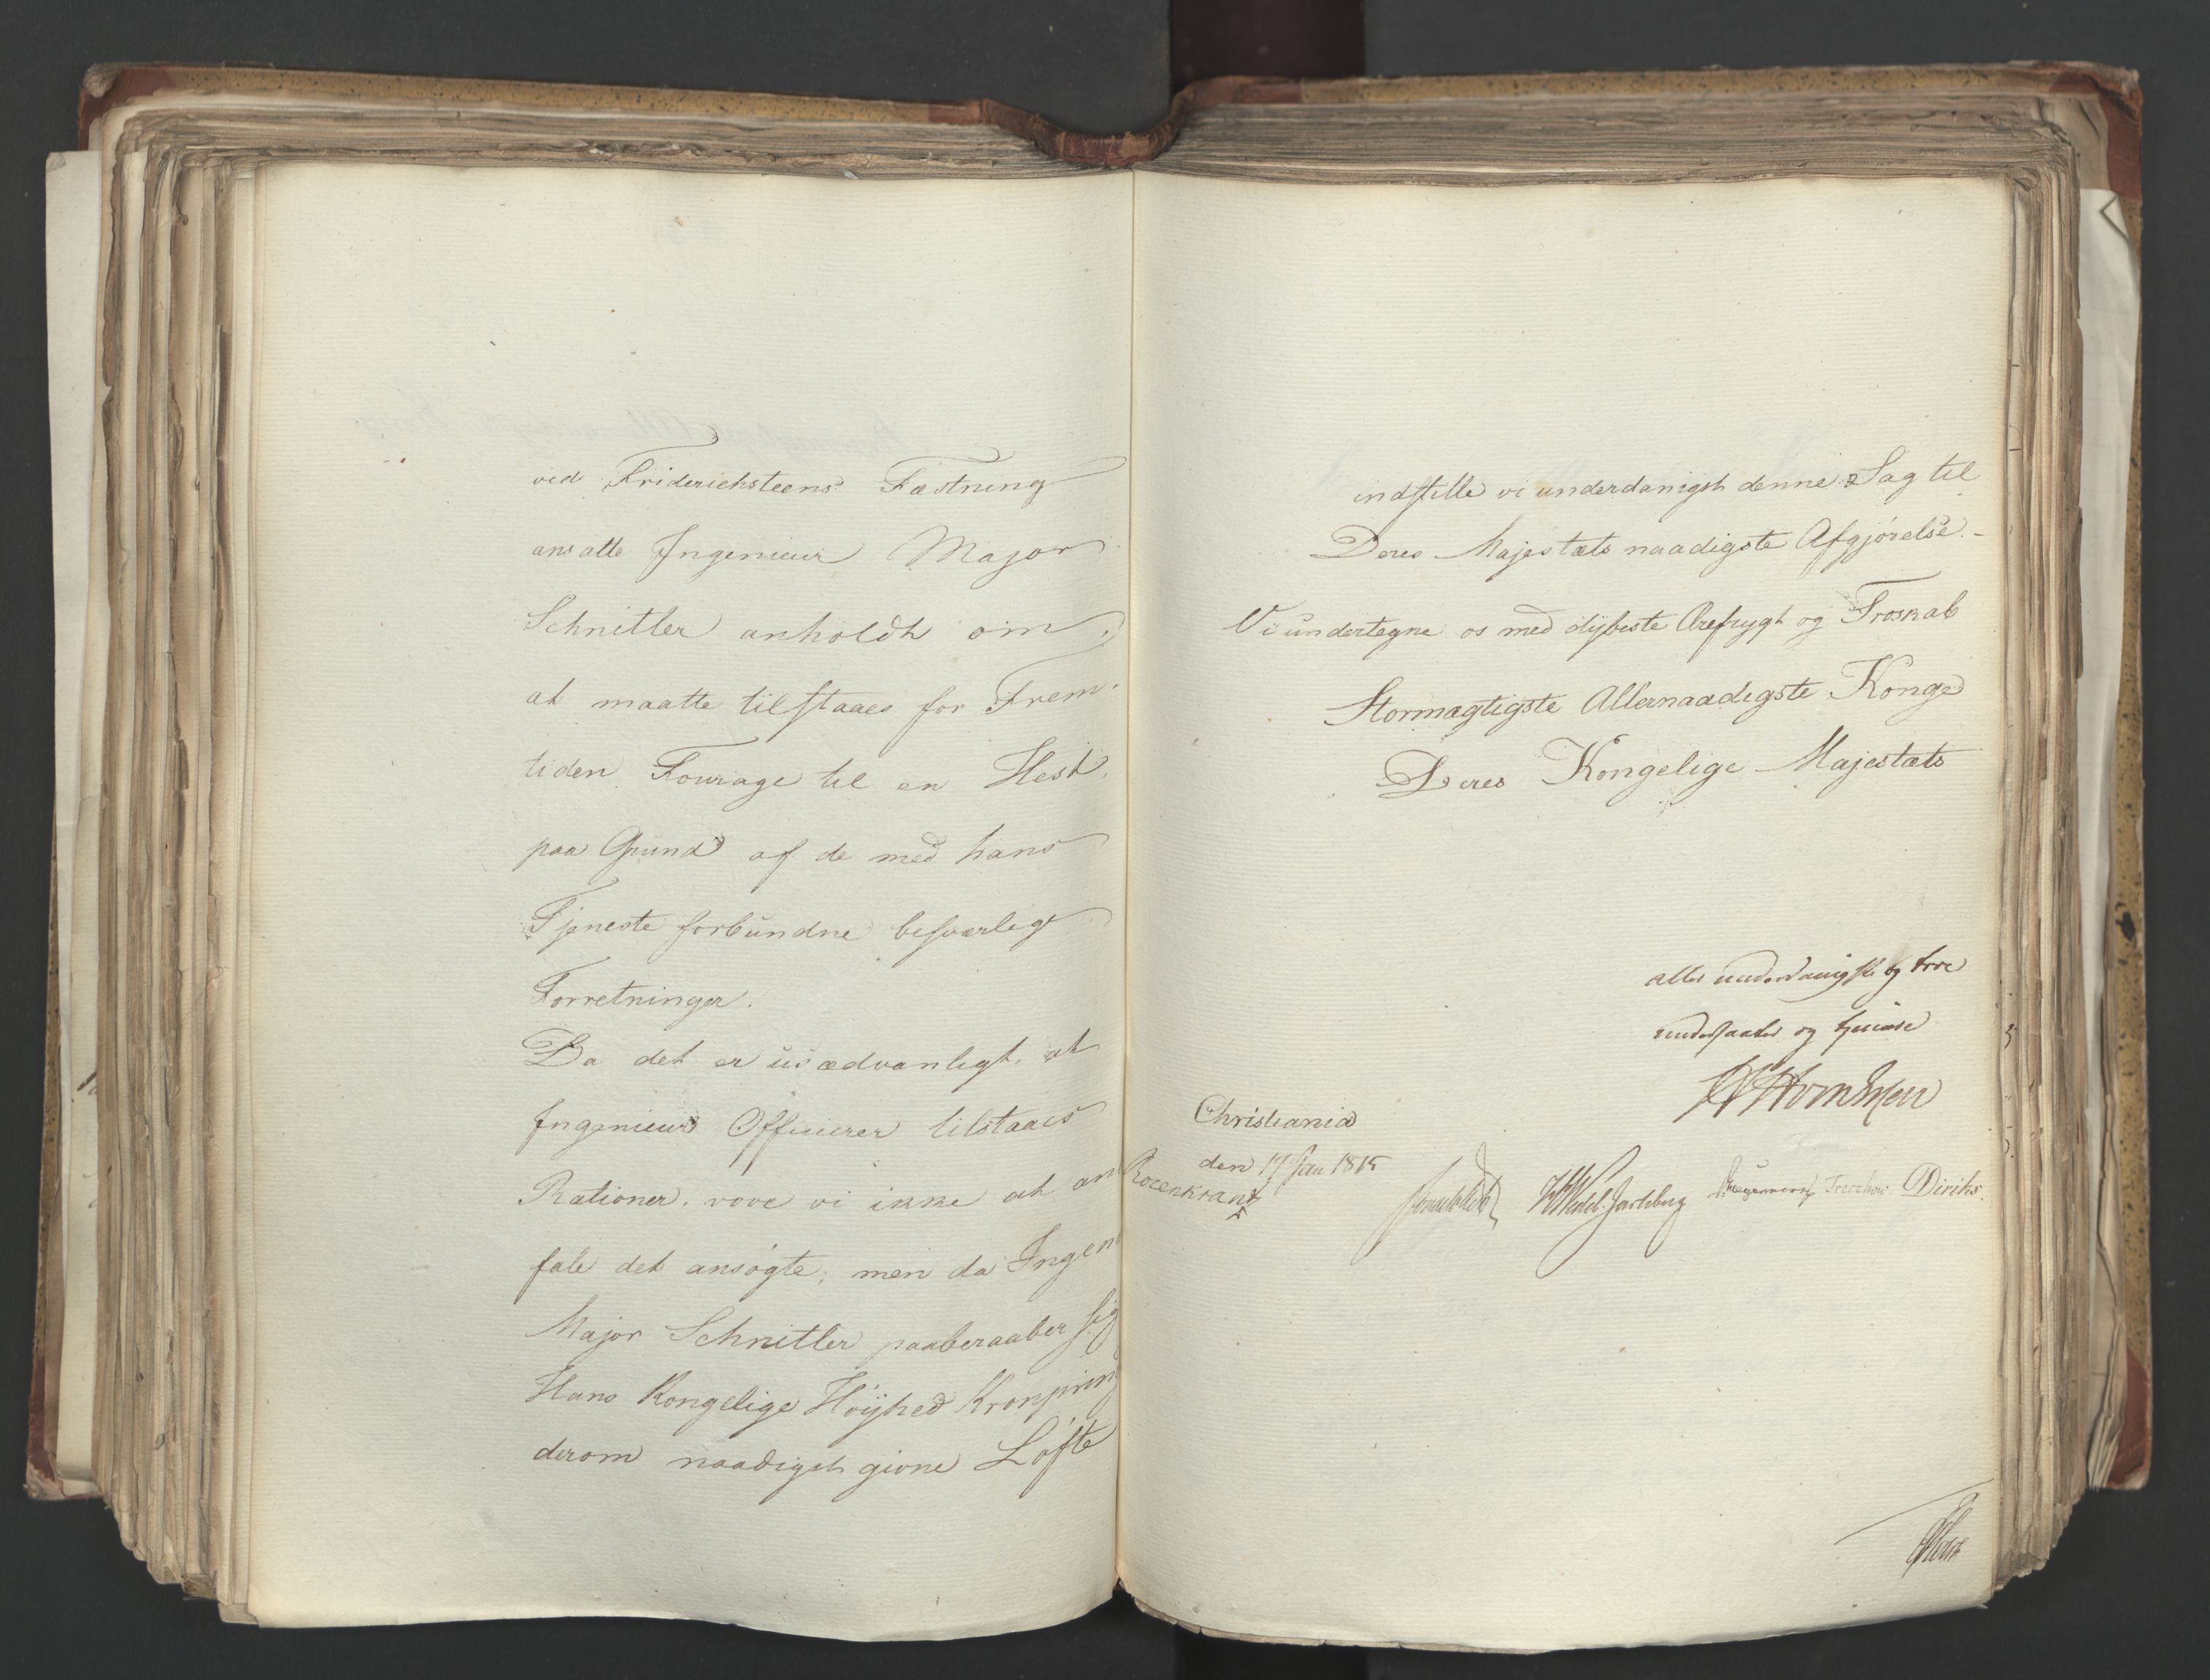 ved Friderichsteens Fæstning
ansatte Ingenieur Major
Schnitler anholdt om,
at maatte tilstaaes for Frem-
tiden Fourage til en Hest,
paa Grund af de med hans
Tjeneste forbundne besværlige
Forretninger.
Da det er usædvanligt, at
Ingenieur Officierer tilstaaes
Rationer, vove vi ikke at an
fale det ansøgte; men da Ingen
Major Schnitler paaberaaber sig
Hans Kongelige Høyhed Kronprin
derom naadigst givne Løfte
indstille vi underdanigst denne Sag til
Deres Majestæts naadigste Afgjørelse. -
Vi undertegne os med dybeste Ærefrygt og Troskab
Stormægtigste Allernaadigste Konge
Deres Kongelige Majestæts
aller underdanigste og troe
undersaatter og tjenere
Christiania
den 17 Jan 1815
Rosenkrantz
Sommerfeldt HWedel-Jarlsberg Hegermann Treschow Diriks.